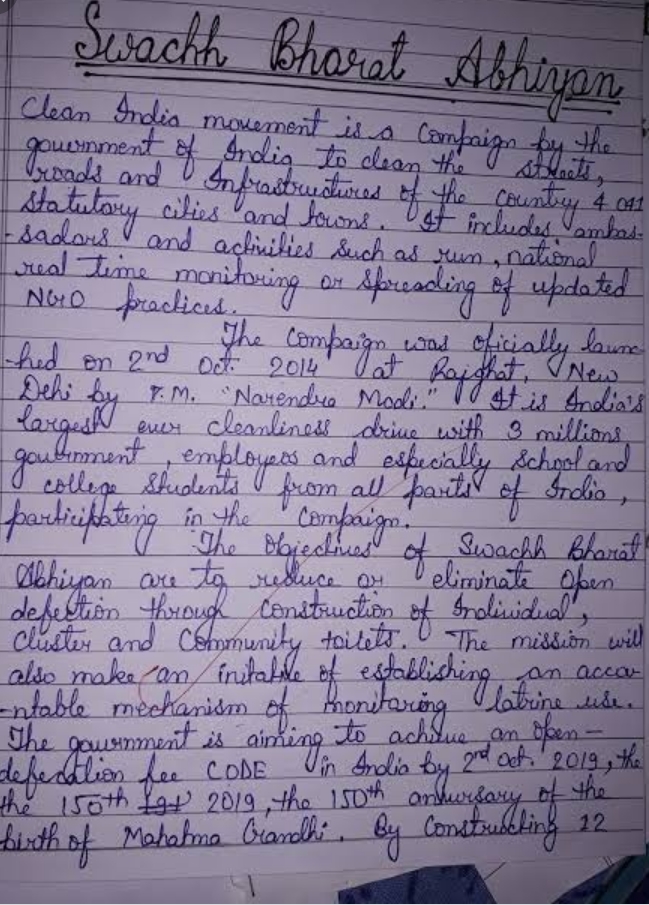 Swachh Bharat Abhiyan
Clean India movement is a Compaign by the
government of India to clean the streets,
roads and Infrastructures of the country 4 041
statutory cities and towns. It includes ambas-
-sadors and activities such as run, national
real time monitoring or spreading of updated
NGO practices.
The Compaign was oficially laun-
-hed on 2nd Oct. 2014 at Rajghat, New
Dehi by P.M. "Narendra Modi." It is India's
largest ever cleanliness drive with 3 millions
government, employees and especially School and
college Students from all parts of India,
participating in the Compaign.
The Objectives of Swachh Bharat
Abhiyan are to reduce or eliminate Open
defection through Construction of Individual,
Cluster and Community toilets. The mission will
also make an initative of establishing an accou-
-ntable mechanism of monitoring latrine use.
The government is aiming to achieve an Open-
defecation fee CODE in India by 2nd Oct. 2019, the
the 150th 2019, the 150th anniversary of the
birth of Mahatma Gandhi. By Constructing 12